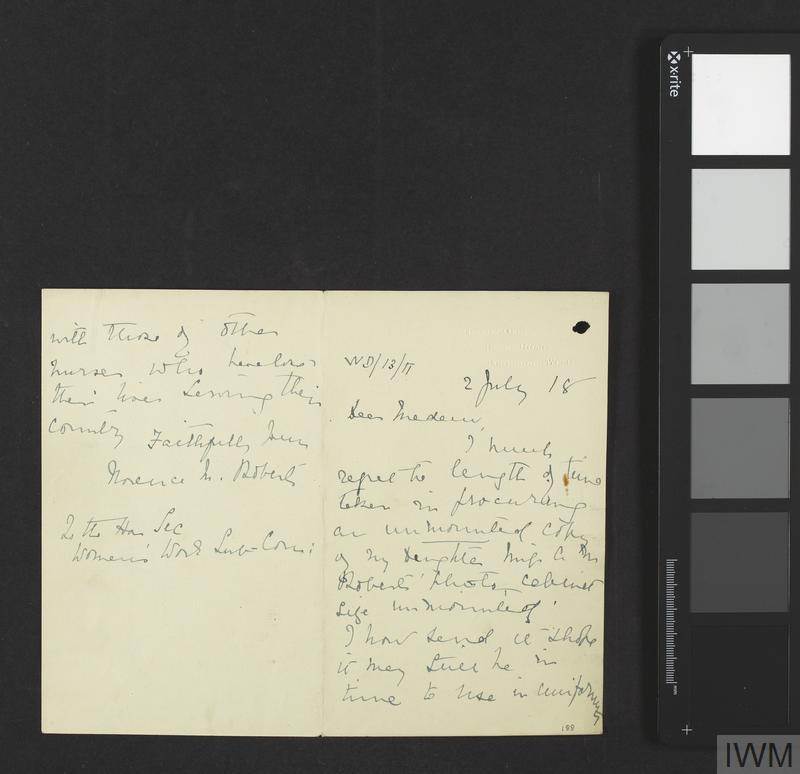 WD/13/11
2 July 18
Dear Madam,
I much
regret the length of time
taken in procuring
an unmounted copy
of my Daughter Miss A M
Roberts' photo, cabinet
size unmounted.
I now send it & hope
it may still be in
time to use in uniformity
188
with those of other
nurses who have lost
their lives serving their
country
Faithfully yours
Florence M. Roberts
To the Hon Sec
Women's Work Sub-Com:
x·rite
IWM